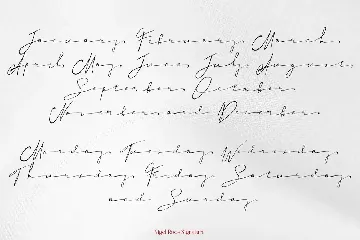 January February March
April May June July August
September October
November and December
Monday Tuesday Wednesday
Thursday Friday Saturday
and Sunday
Nigel Rosa Signature